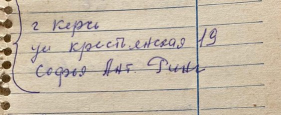 г Керчь
ул крестьянская 19
Софья Ант. Финк